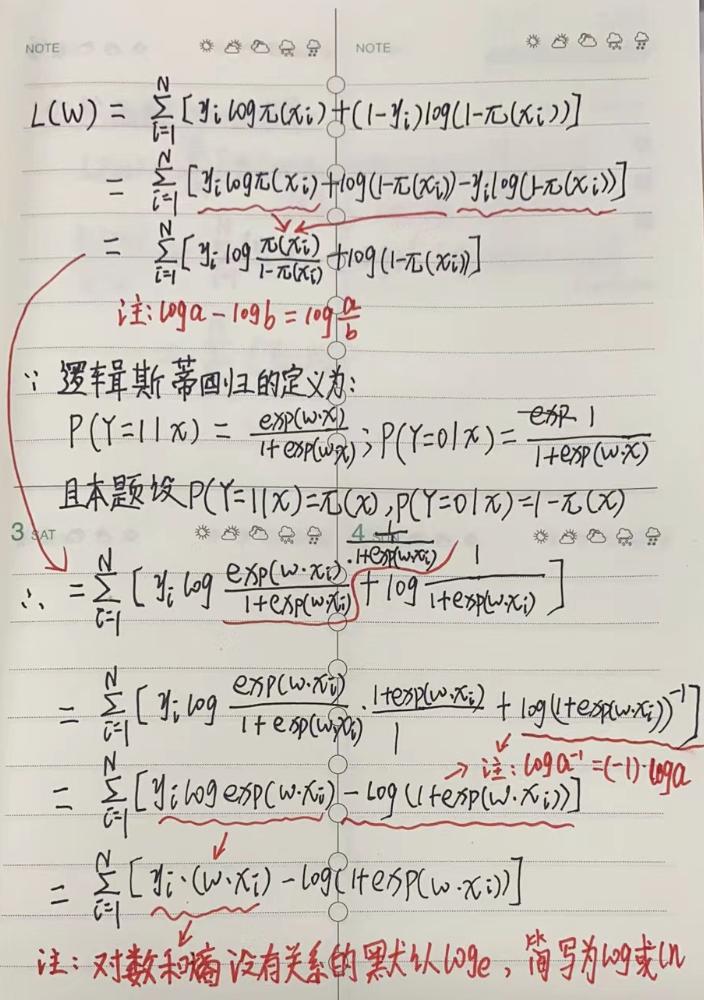 NOTE NOTE
L(W) = ∑_{i=1}^{N} [y_i log π(x_i) + (1-y_i) log(1-π(x_i))]
= ∑_{i=1}^{N} [y_i log π(x_i) + log(1-π(x_i)) - y_i log(1-π(x_i))]
= ∑_{i=1}^{N} [y_i log \frac{π(x_i)}{1-π(x_i)} + log(1-π(x_i))]
注: log a - log b = log \frac{a}{b}
∵ 逻辑斯蒂回归的定义为:
P(Y=1|x) = \frac{exp(w·x)}{1+exp(w·x)}; P(Y=0|x) = \frac{1}{1+exp(w·x)}
且本题设P(Y=1|x)=π(x), P(Y=0|x)=1-π(x)
3 SAT 4
∴ = ∑_{i=1}^{N} [y_i log \frac{exp(w·x_i)}{1+exp(w·x_i)} · \frac{1}{1+exp(w·x_i)} + log \frac{1}{1+exp(w·x_i)}]
= ∑_{i=1}^{N} [y_i log \frac{exp(w·x_i)}{1+exp(w·x_i)} · \frac{1+exp(w·x_i)}{1} + log(1+exp(w·x_i))^{-1}]
→ 注: log a^{-1} = (-1)·log a
= ∑_{i=1}^{N} [y_i log exp(w·x_i) - log(1+exp(w·x_i))]
= ∑_{i=1}^{N} [y_i·(w·x_i) - log(1+exp(w·x_i))]
注: 对数和熵没有关系的默认 log e, 简写为 log 或 ln